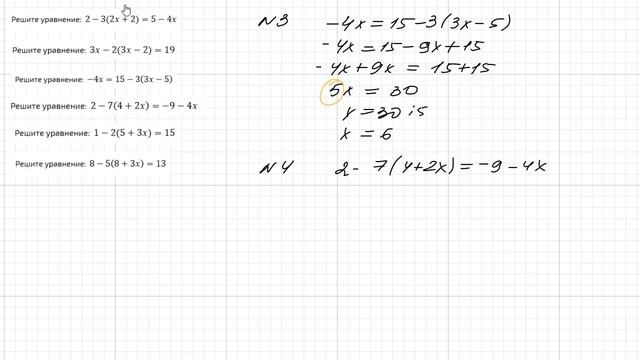 Решите уравнение: 2 − 3(2x + 2) = 5 − 4x
Решите уравнение: 3x − 2(3x − 2) = 19
Решите уравнение: −4x = 15 − 3(3x − 5)
Решите уравнение: 2 − 7(4 + 2x) = −9 − 4x
Решите уравнение: 1 − 2(5 + 3x) = 15
Решите уравнение: 8 − 5(8 + 3x) = 13
N3 −4x = 15 − 3(3x − 5)
−4x = 15 − 9x + 15
−4x + 9x = 15 + 15
5x = 30
x = 30 : 5
x = 6
N4 2 − 7(4 + 2x) = −9 − 4x